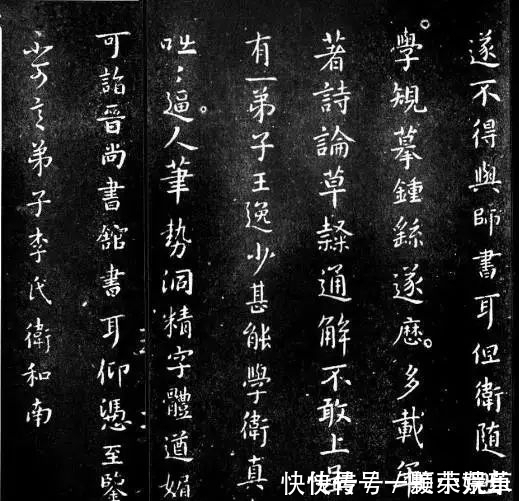 遂不得與師書耳但衛隨
學規摹鍾繇遂歷多載年
著詩論草隸通解不敢上呈
有一弟子王逸少甚能學衛真
咄咄逼人筆勢洞精字體遒媚
可詣晉尚書館書耳仰憑至鑒
不可言弟子李氏衛和南
快传号